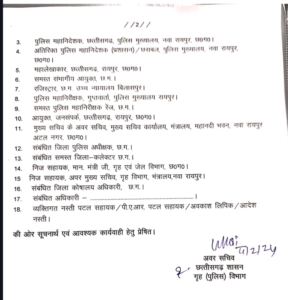 //2//
3. पुलिस महानिदेशक, छत्तीसगढ़, पुलिस मुख्यालय, नवा रायपुर, छ०ग०।
4. अतिरिक्त पुलिस महानिदेशक (प्रशासन)/छसबल, पुलिस मुख्यालय, नवा रायपुर,
छ०ग०।
5. महालेखाकार, छत्तीसगढ़, रायपुर, छ०ग०।
6. समस्त संभागीय आयुक्त, छ.ग.।
7. रजिस्ट्रार, छ.ग. उच्च न्यायालय बिलासपुर।
8. पुलिस महानिरीक्षक, गुप्तवार्ता, पुलिस मुख्यालय रायपुर।
9. समस्त पुलिस महानिरीक्षक रेंज, छ.ग.।
10. आयुक्त, जनसंपर्क, छत्तीसगढ़, रायपुर, छ०ग०।
11. मुख्य सचिव के अवर सचिव, मुख्य सचिव कार्यालय, मंत्रालय, महानदी भवन, नवा रायपुर
अटल नगर, छ०ग०।
12. संबंधित जिला पुलिस अधीक्षक, छ.ग.।
13. संबंधित समस्त जिला-कलेक्टर छ.ग.।
14 निज सहायक, मान. मंत्री जी, गृह एवं जेल विभाग, छ०ग०।
15 निज सहायक, अपर मुख्य सचिव, गृह विभाग, मंत्रालय,नवा रायपुर।
16 संबंधित जिला कोषालय अधिकारी, छ.ग.।
17 संबंधित अधिकारी - ।
18. व्यक्तिगत नस्ती पटल सहायक/पी.ए.आर. पटल सहायक/अवकाश लिपिक/आदेश
नस्ती।
की ओर सूचनार्थ एवं आवश्यक कार्यवाही हेतु प्रेषित।
अवर सचिव
छत्तीसगढ़ शासन
गृह (पुलिस) विभाग